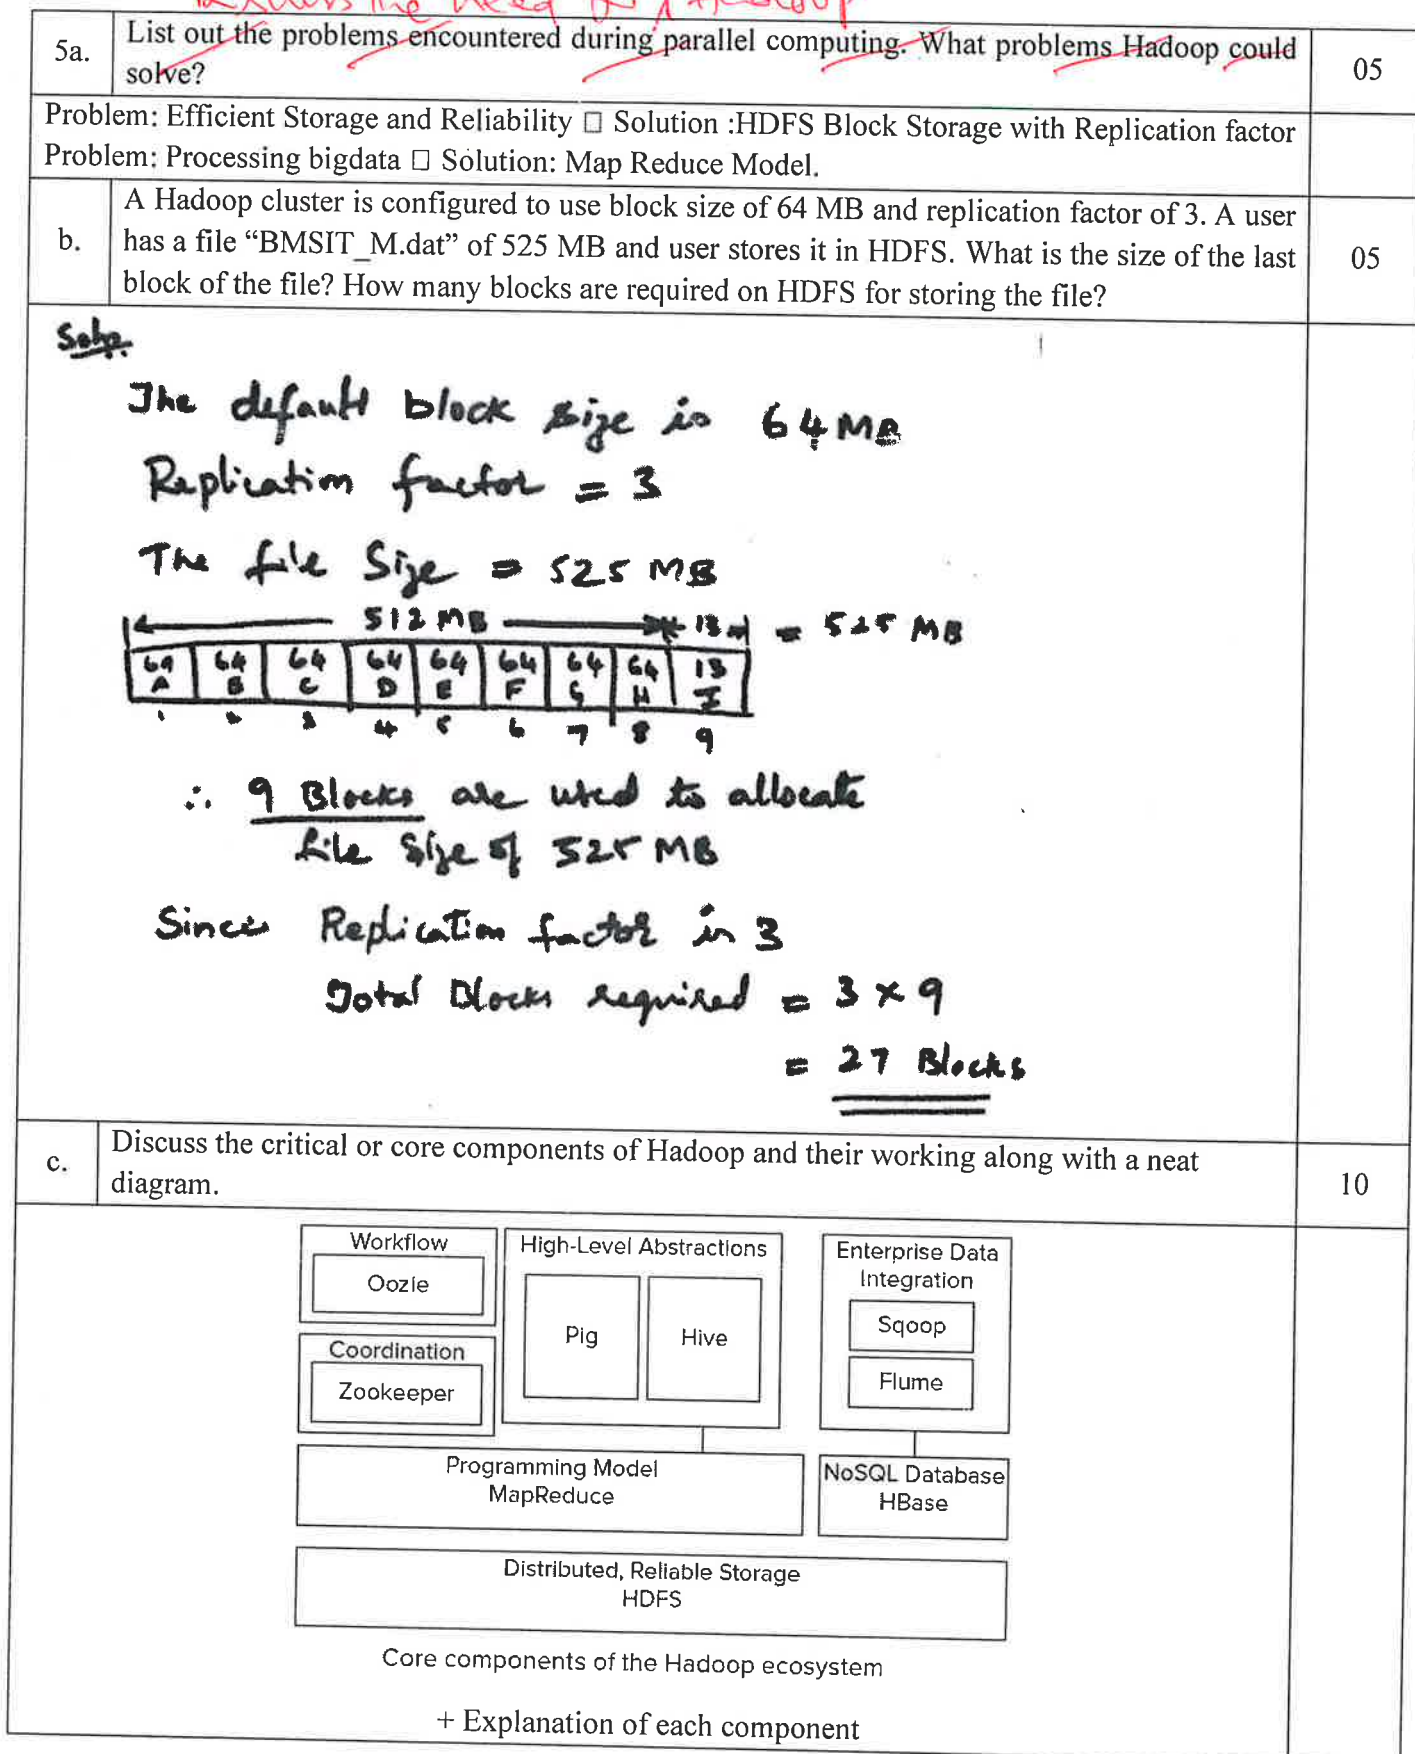 5a.
List out the problems encountered during parallel computing. What problems Hadoop could
solve?
05
Problem: Efficient Storage and Reliability □ Solution :HDFS Block Storage with Replication factor
Problem: Processing bigdata □ Solution: Map Reduce Model.
b.
A Hadoop cluster is configured to use block size of 64 MB and replication factor of 3. A user
has a file “BMSIT_M.dat” of 525 MB and user stores it in HDFS. What is the size of the last
block of the file? How many blocks are required on HDFS for storing the file?
05
Soln.
The default block size is 64 MB
Replication factor = 3
The file Size = 525 MB
512 MB 13 = 525 MB
64 64 64 64 64 64 64 64 13
A B C D E F G H I
1 2 3 4 5 6 7 8 9
∴ 9 Blocks are used to allocate
file size of 525 MB
Since Replication factor is 3
Total Blocks required = 3 × 9
= 27 Blocks
c.
Discuss the critical or core components of Hadoop and their working along with a neat
diagram.
10
Workflow
Oozie
Coordination
Zookeeper
High-Level Abstractions
Pig
Hive
Enterprise Data
Integration
Sqoop
Flume
Programming Model
MapReduce
NoSQL Database
HBase
Distributed, Reliable Storage
HDFS
Core components of the Hadoop ecosystem
+ Explanation of each component